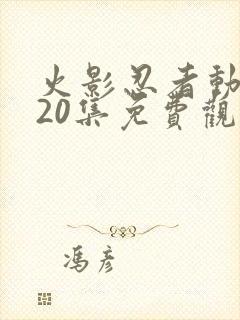 火影忍者動
20集免費觀
馮彥